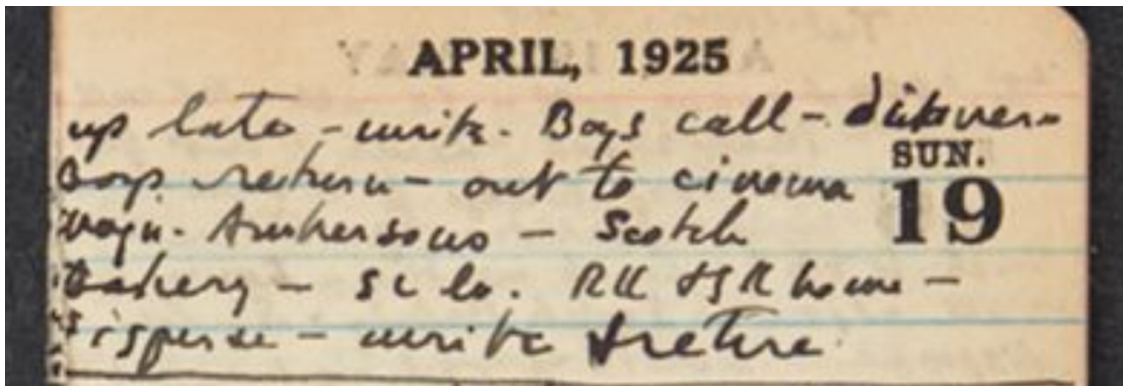 APRIL, 1925
up late - write. Boys call - dinner -
SUN.
Boys return - out to cinema
19
Magn. Ambersons - Scotch
Bakery - SL lo. RK HSK home -
disperse - write & retire